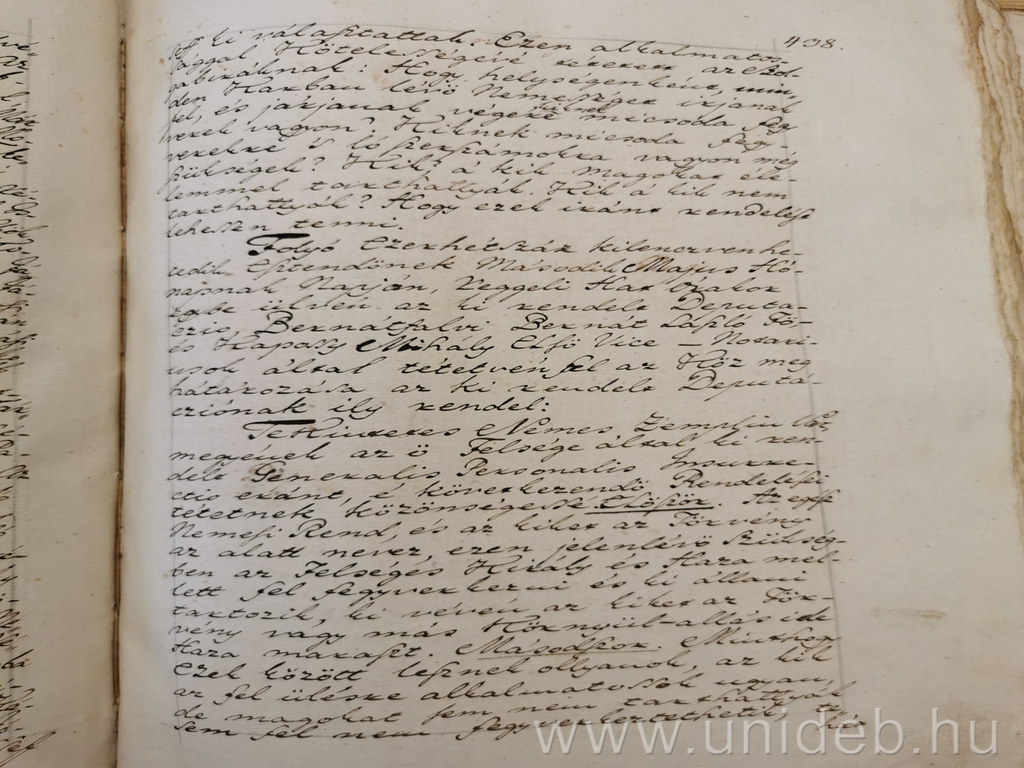 438.
ki választattak. Ezen alkalmatos-
sággal Kötelességévé tétetett az
Biráknak: Hogy helységenként, min-
den Karban lévő Nemességet irjanak
fel, és járjanak végére micsoda feg
verek vagyon? Kiknek micsoda fegy
verekre s lószerszámokra vagyon még
szükségek? Kik a kik magokat ló-
tarthattyák? Kik a kik nem
tarthattyák? Hogy ezek iránt rendelést
lehessen tenni.
Folyó Ezerhétszáz kilenczvenhe-
tedik Esztendőnek Második Május Hó-
napnak Napján, Reggeli Hat Órakor
egybe ülvén az ki rendelt Deputa-
czio, Bernátfalvi Bernát László Fő-
és Kapossy Mihály Első Vice-Notari-
usok által tétetvén fel az Köz meg
határozása az ki rendelt Deputa-
cziónak ily rendel:
Tekintetes Nemes Zemplin Vár
megyének az ő Felsége által ki ren
delt Generalis Personalis Insurre-
ctio eránt, e következendő Rendelések
tétetnek közönségessé. Elöször. Az egész
Nemesi Rend, és az kiket az Törvény
az alatt nevez, ezen jelenlévő szükség-
ben az Felséges Király és Haza mel-
lett fel fegyverkezni és ki állani
tartozik, ki vévén az kiket az Tör-
vény vagy más Környül-állás itt
Haza maraszt. Másodszor. Minthogy
Ezek között lesznek ollyanok, az kik
az fel ülésre alkalmatossok ugyan,
de magokat sem nem tarthattyák
sem fel nem fegyverkeztethetik, az
www.unideb.hu